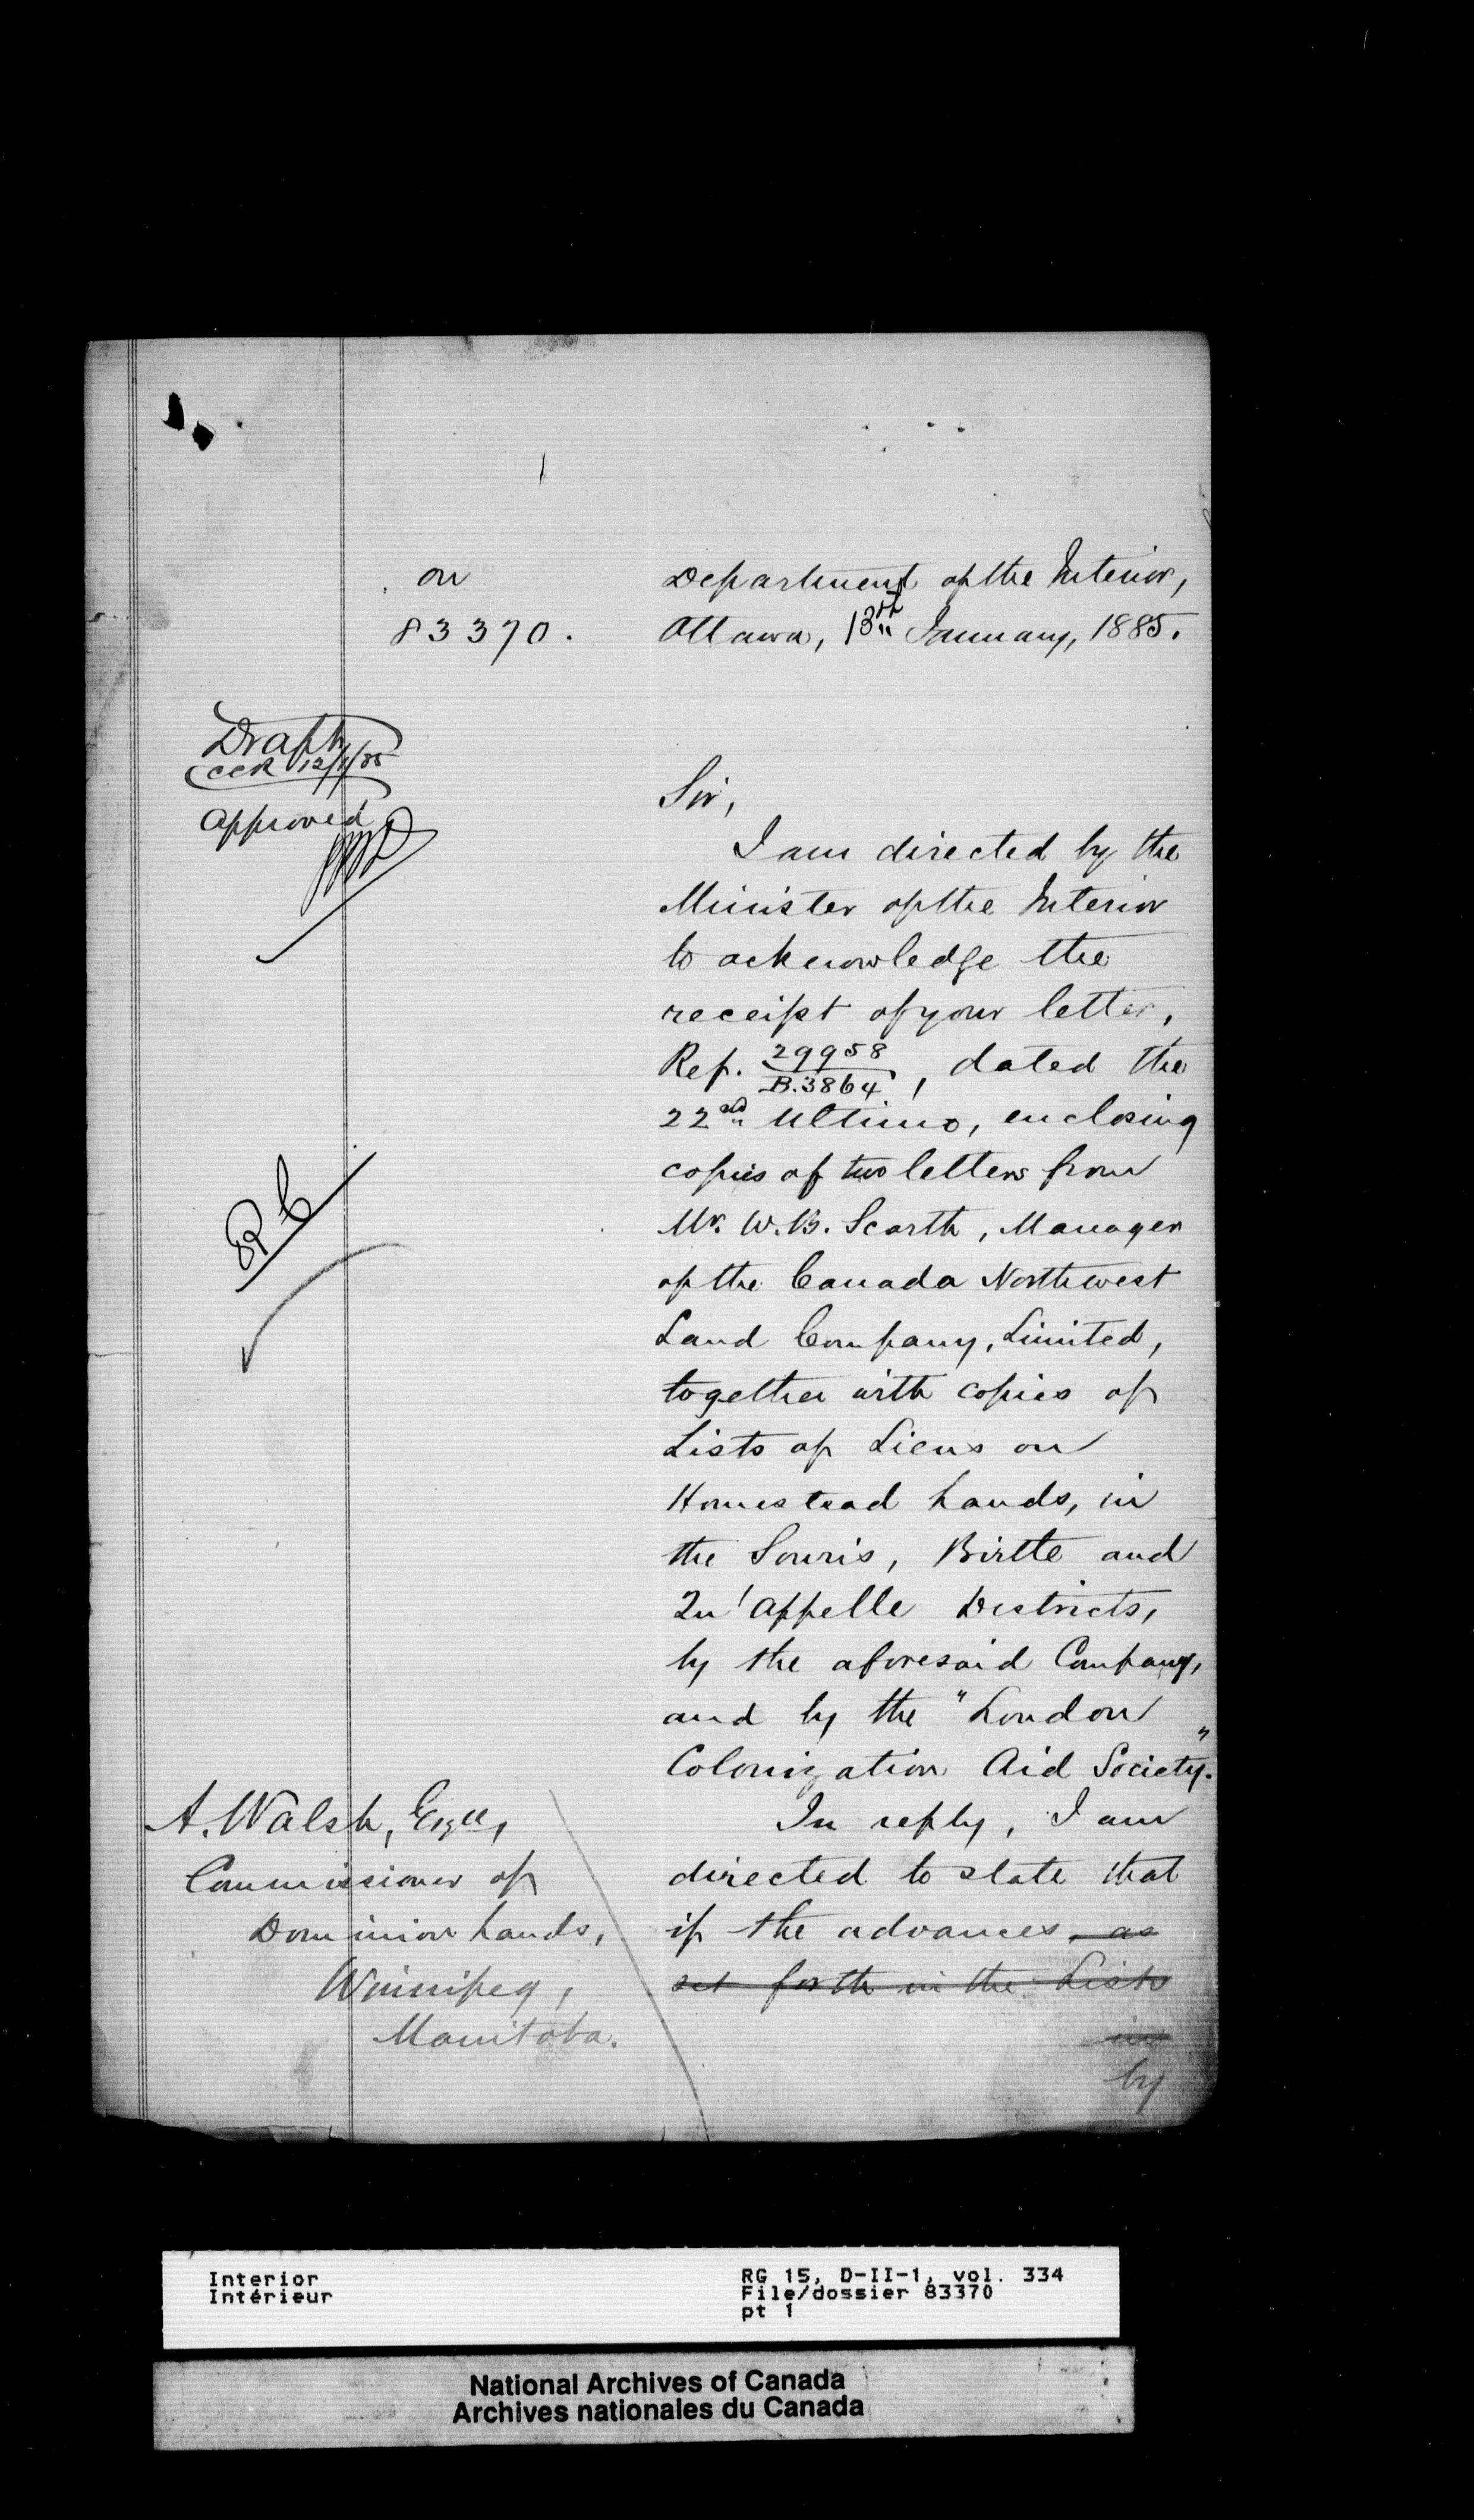 on
83370.
Department of the Interior,
Ottawa, 13th January, 1885.
Draft
CCR 12/1/85
Approved
Sir,
I am directed by the
Minister of the Interior
to acknowledge the
receipt of your letter,
Ref. 29958/B.3864, dated the
22nd Ultimo, enclosing
copies of two letters from
Mr. W.B. Scarth, Manager
of the Canada Northwest
Land Company, Limited,
together with copies of
Lists of Liens on
Homestead Lands, in
the Souris, Birtle and
Qu'Appelle Districts,
by the aforesaid Company,
and by the "London
Colonization Aid Society".
In reply, I am
directed to state that
if the advances, as
set forth in the Lists
in
by
A. Walsh, Esqre,
Commissioner of
Dominion Lands,
Winnipeg,
Manitoba.
Interior
Intérieur
RG 15, D-II-1, vol. 334
File/dossier 83370
pt 1
National Archives of Canada
Archives nationales du Canada